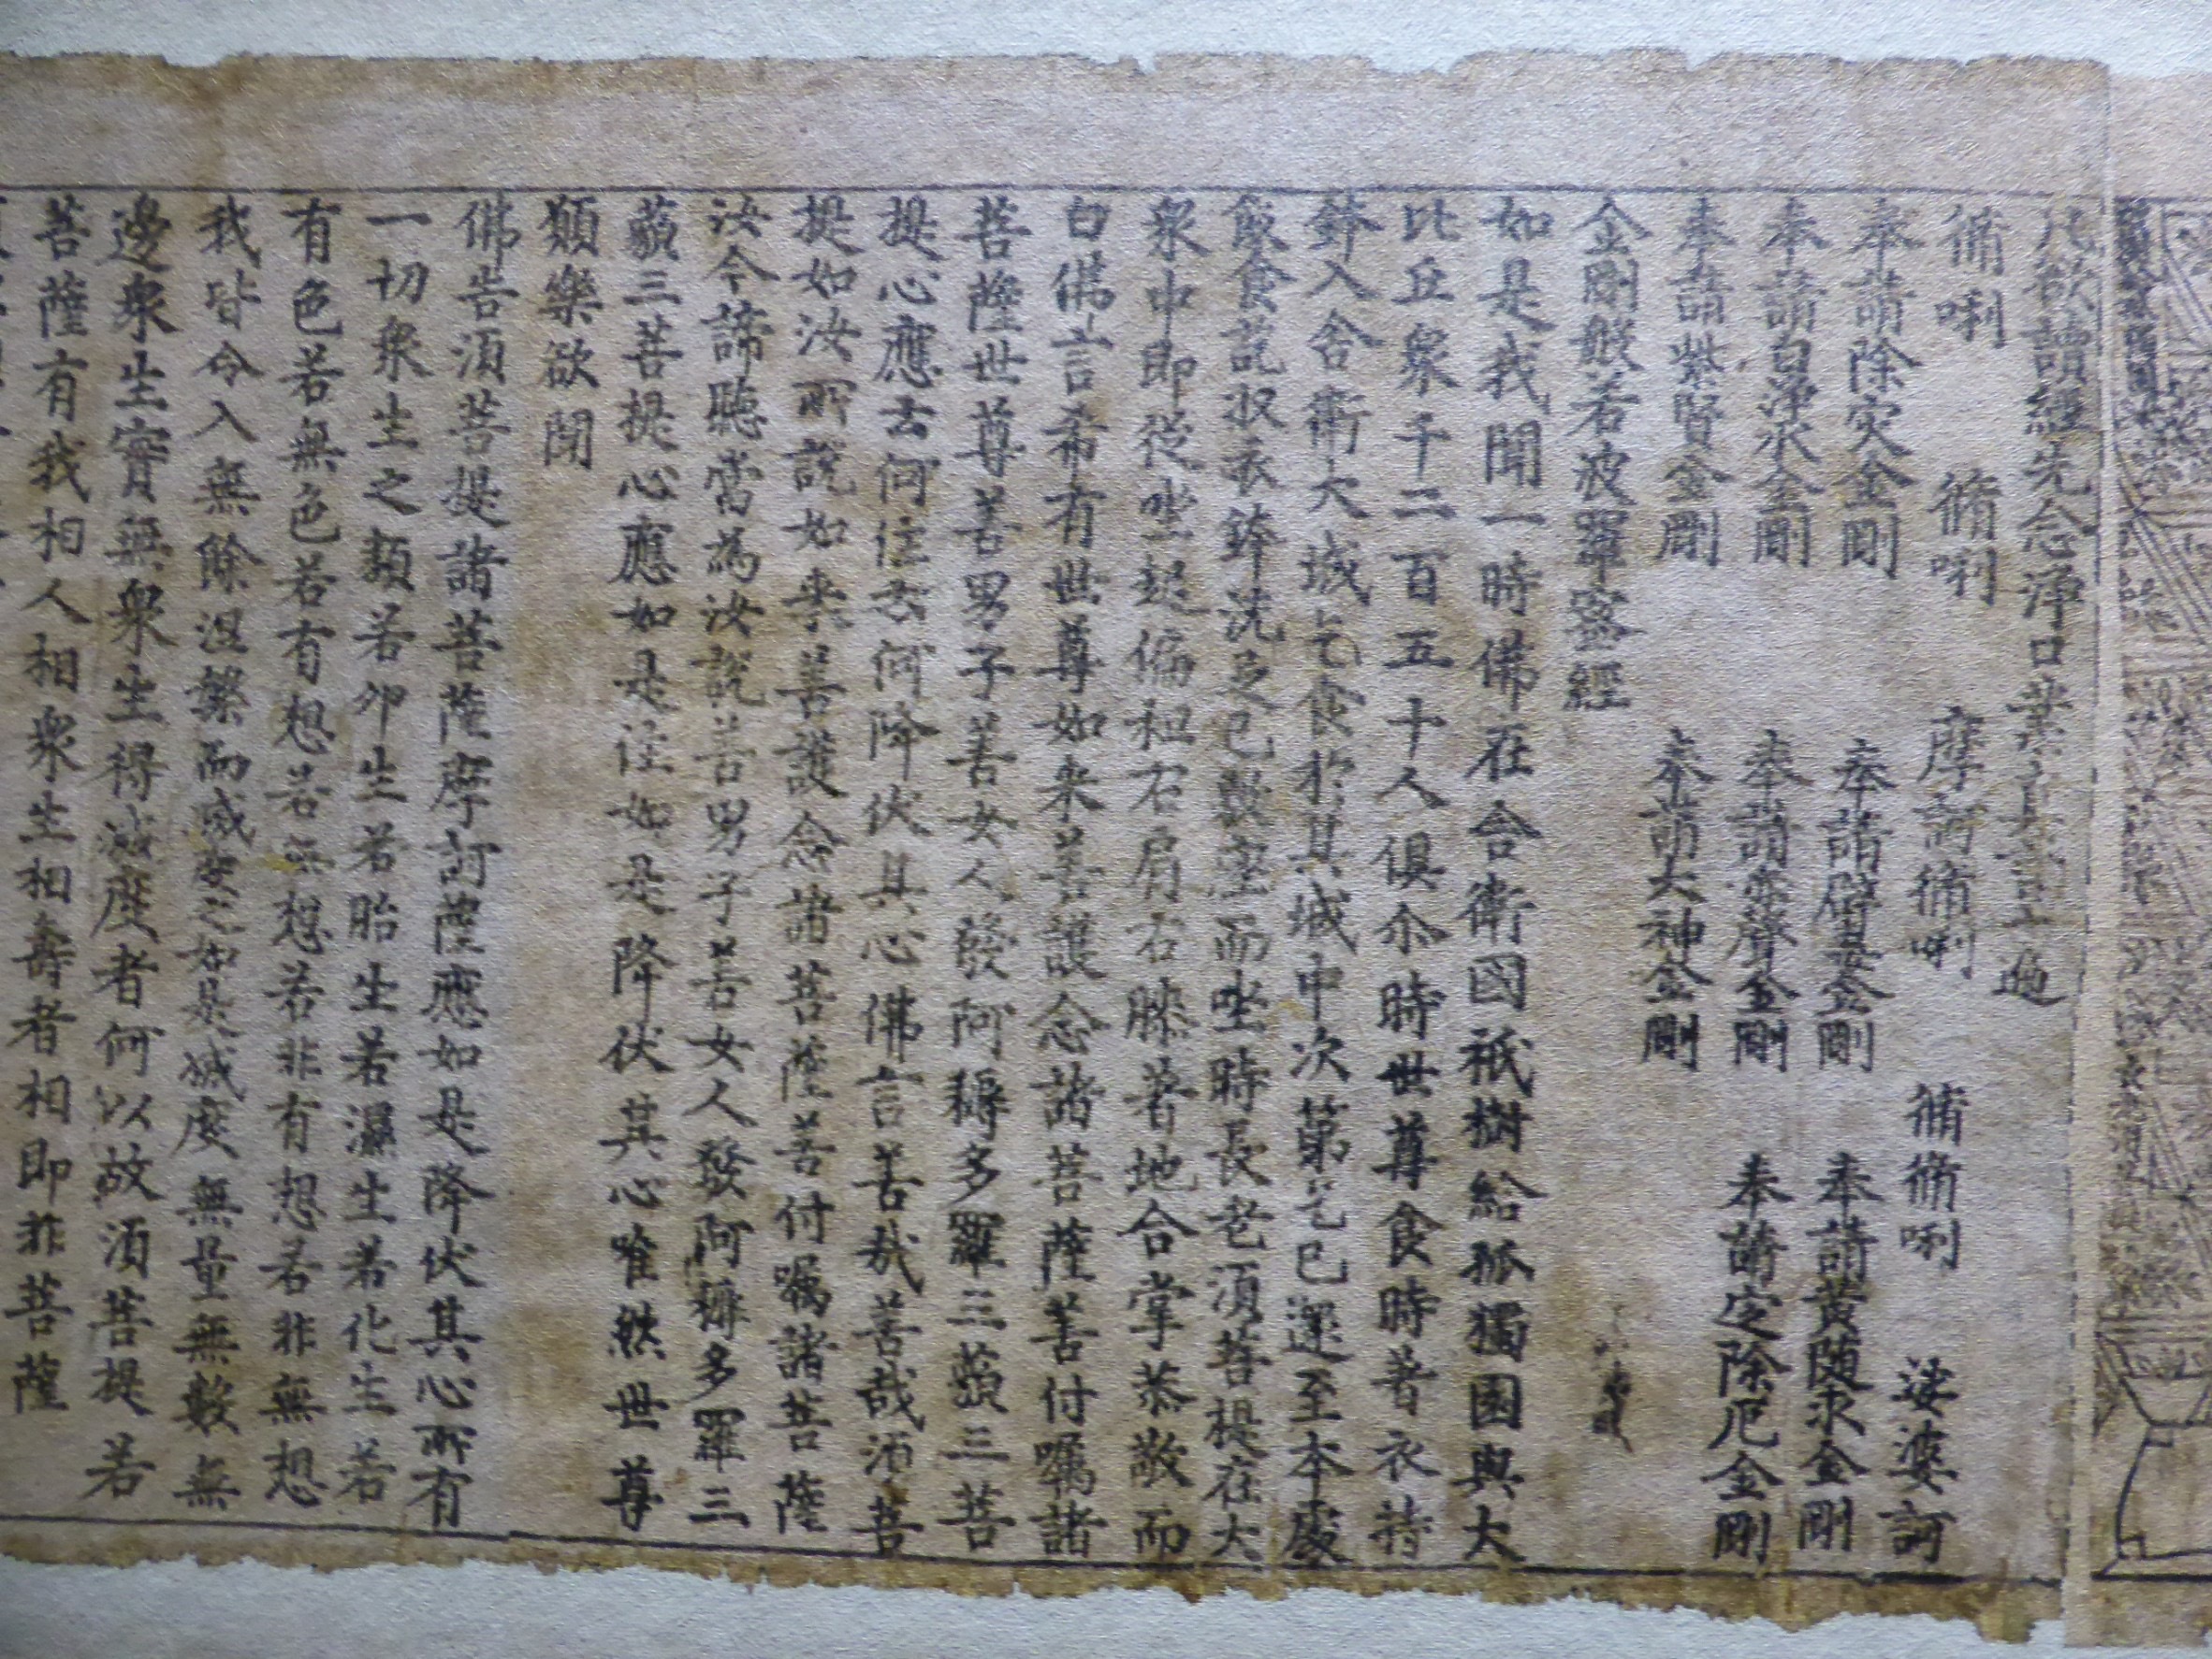 凡欲讀經先念淨口業真言一遍
脩唎 脩唎 摩訶脩唎 脩脩唎 娑婆訶
奉請除灾金剛 奉請辟毒金剛 奉請黃随求金剛
奉請白淨水金剛 奉請赤聲金剛 奉請定除厄金剛
奉請紫賢金剛 奉請大神金剛
金剛般若波羅蜜經
如是我聞一時佛在舍衛國祇樹給孤獨園與大
比丘眾千二百五十人俱尒時世尊食時著衣持
鉢入舍衛大城乞食於其城中次第乞已還至本處
飯食訖収衣鉢洗足已敷座而坐時長老須菩提在大
眾中即從坐起偏袒右肩右膝著地合掌恭敬而
白佛言希有世尊如来善護念諸菩薩善付囑諸
菩薩世尊善男子善女人發阿耨多羅三藐三菩
提心應云何住云何降伏其心佛言善哉善哉須菩
提如汝所說如来善護念諸菩薩善付囑諸菩薩
汝今諦聽當為汝說善男子善女人發阿耨多羅三
藐三菩提心應如是住如是降伏其心唯然世尊
願樂欲聞
佛告須菩提諸菩薩摩訶薩應如是降伏其心所有
一切眾生之類若卵生若胎生若濕生若化生若
有色若無色若有想若無想若非有想若非無想
我皆令入無餘涅槃而滅度之如是滅度無量無數無
邊眾生實無眾生得滅度者何以故須菩提若
菩薩有我相人相眾生相壽者相即非菩薩